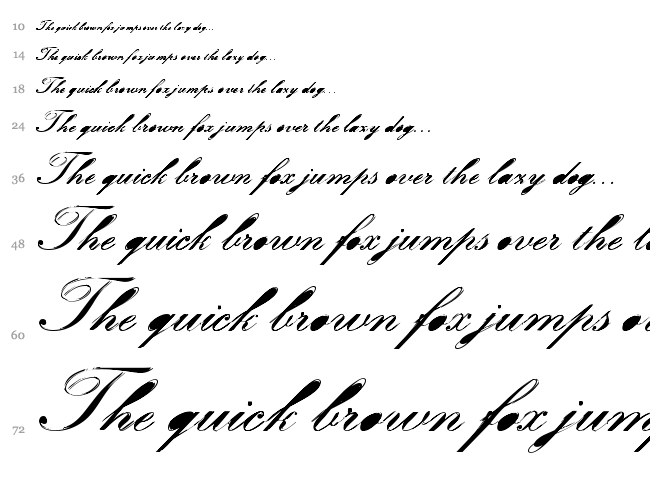 10 The quick brown fox jumps over the lazy dog...
14 The quick brown fox jumps over the lazy dog...
18 The quick brown fox jumps over the lazy dog...
24 The quick brown fox jumps over the lazy dog...
36 The quick brown fox jumps over the lazy dog...
48 The quick brown fox jumps over the l
60 The quick brown fox jumps o
72 The quick brown fox jum